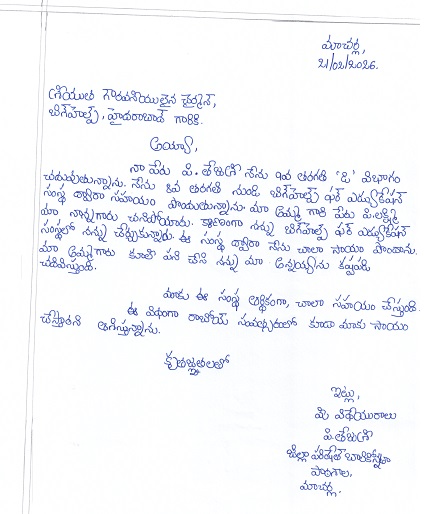 మాచర్ల,
21/02/2026.
శ్రీయుత గౌరవనీయులైన ఛైర్మెన్,
బిగ్‌హెల్ప్, హైదరాబాద్ గారికి.
అయ్యా,
నా పేరు పి. తేజశ్రీ నేను 9వ తరగతి 'డి' విభాగం
చదువుతున్నాను. నేను 8వ తరగతి నుండి బిగ్‌హెల్ప్ ఫర్ ఎడ్యుకేషన్
సంస్థ ద్వారా సహాయం పొందుతున్నాను. మా అమ్మ గారి పేరు పి.లక్ష్మి
మా నాన్నగారు చనిపోయారు. కారణంగా నన్ను బిగ్‌హెల్ప్ ఫర్ ఎడ్యుకేషన్
సంస్థలో నన్ను చేర్చుకున్నారు. ఈ సంస్థ ద్వారా నేను చాలా సాయం పొందాను.
మా అమ్మగారు కూలి పని చేసి నన్ను మా అన్నయ్యను కష్టపడి
చదివిస్తుంది.
మాకు ఈ సంస్థ ఆర్థికంగా, చాలా సహాయం చేస్తుంది.
ఈ విధంగా రాబోయే సంవత్సరంలో కూడా మాకు సాయం
చేస్తారని ఆశిస్తున్నాను.
కృతజ్ఞతలతో
ఇట్లు,
మీ విధేయురాలు
పి.తేజశ్రీ
జిల్లా పరిషత్ బాలికోన్నత
పాఠశాల,
మాచర్ల.